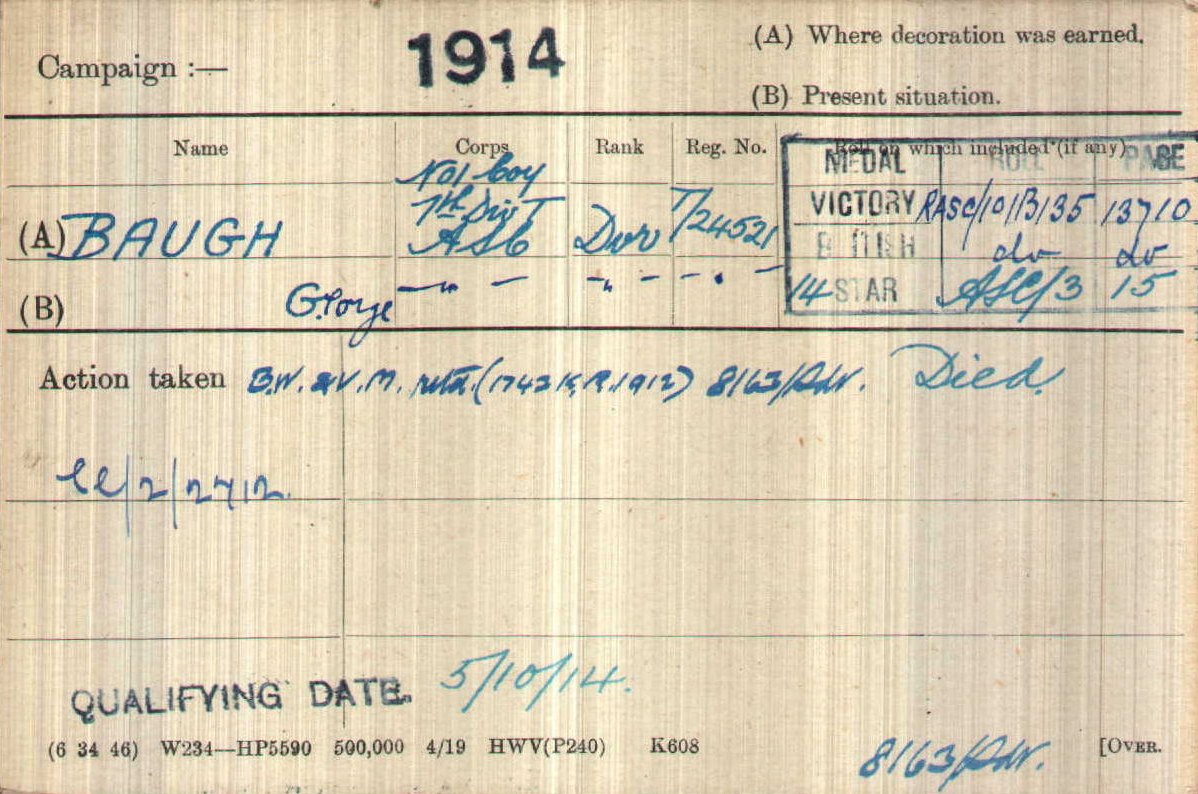 Campaign :— 1914
(A) Where decoration was earned.
(B) Present situation.
Name Corps Rank Reg. No. Roll on which included (if any)
MEDAL ROLL PAGE
No1 Coy
7th Div T
(A) BAUGH ASC Dvr T/24521
VICTORY RASC/101B135 13710
BRITISH do do
(B) George — " — — " — — " —
14 STAR ASC/3 15
Action taken B.W. & V.M. retd. (1743 K.R. 1912) 8163/Adt. Died.
/2/2712.
QUALIFYING DATE. 5/10/14.
(6 34 46) W234—HP5590 500,000 4/19 HWV(P240) K608
8163/Adt. [OVER.